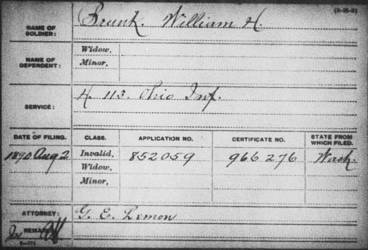 (3-15-2)
NAME OF SOLDIER: Brunk, William H.
NAME OF DEPENDENT: Widow,
Minor,
SERVICE: H. 113. Ohio Inf.
DATE OF FILING. CLASS. APPLICATION NO. CERTIFICATE NO. STATE FROM WHICH FILED.
1890 Aug 2 Invalid, 852059 966276 Wash.
Widow,
Minor,
ATTORNEY: G. E. Lemon
REMARKS: